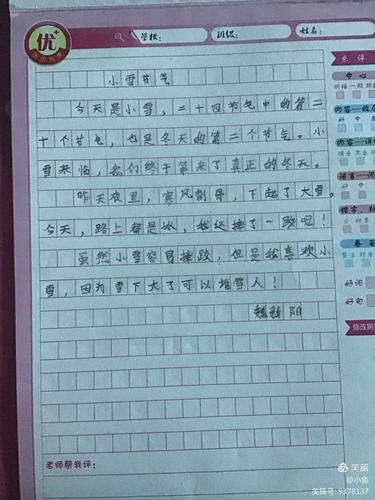 优
学校：
班级：
姓名：
点评
中心
小雪节气
今天是小雪，二十四节气中的第二
十个节气，也是冬天的第二个节气。小
雪来临，我们终于等来了真正的冬天。
昨天夜里，寒风刺骨，下起了大雪。
今天，路上都是冰，我还摔了一跤呢！
虽然小雪容易摔跤，但是我喜欢小
雪，因为雪下大了可以堆雪人！
阳
好词
好句
老师帮我评：
美篇
@小鱼
美篇号: 9378137